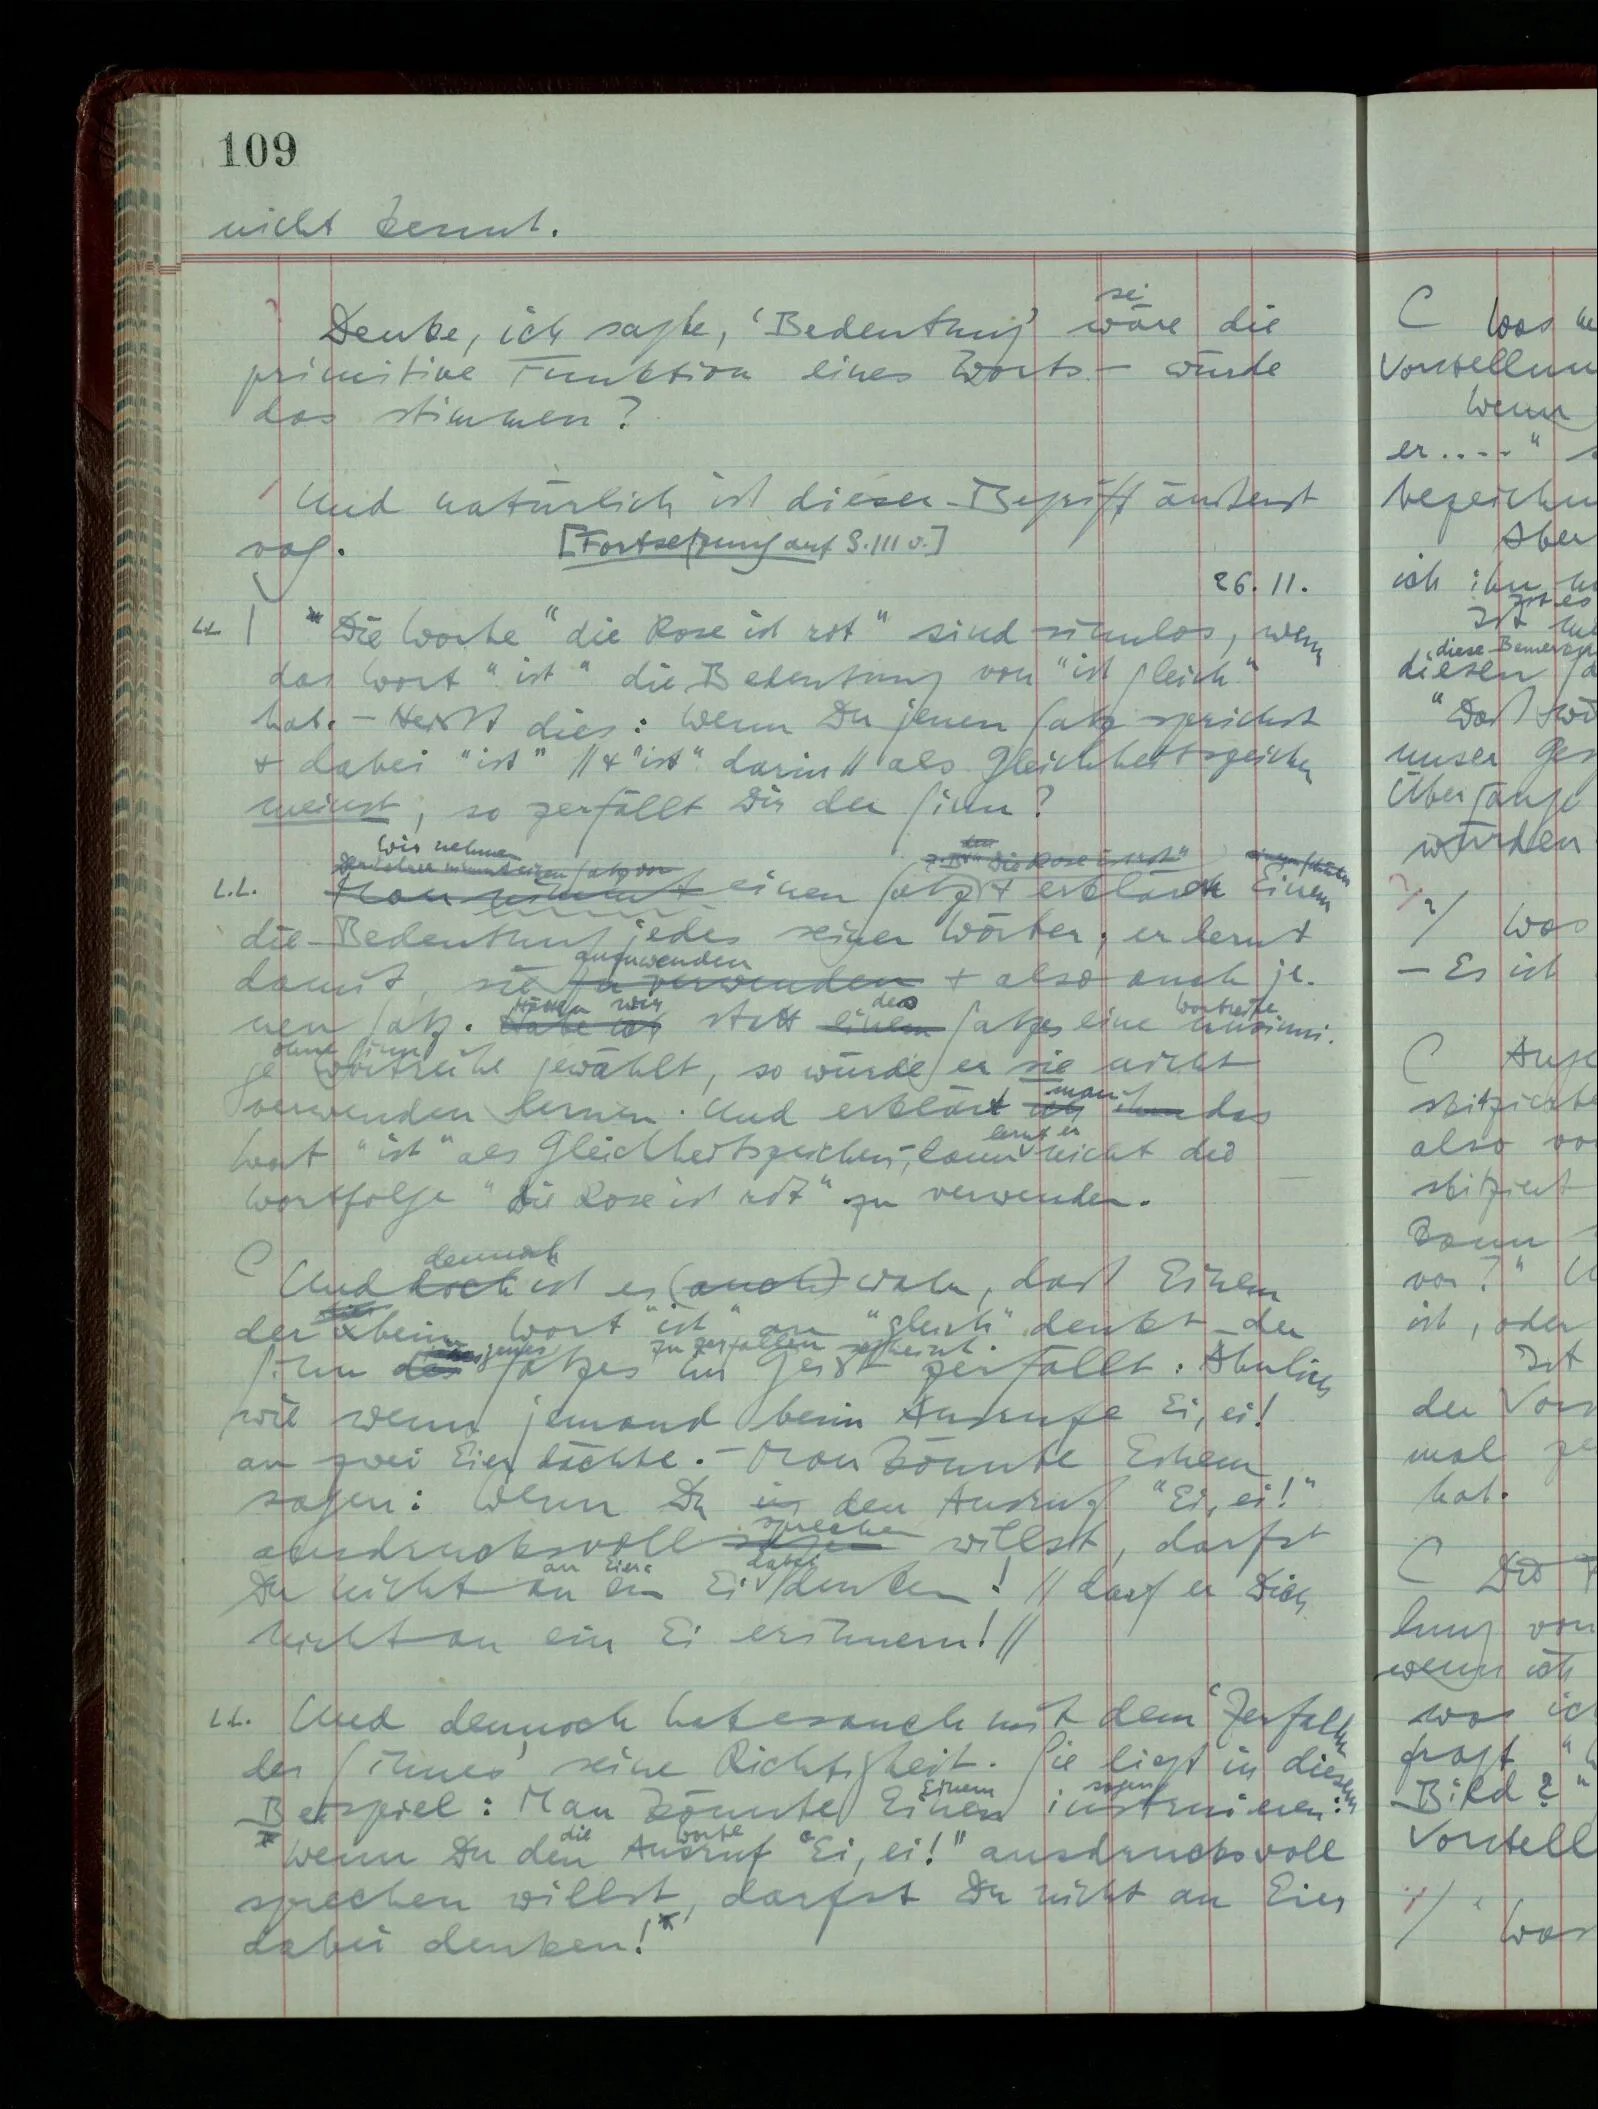 109
nicht kennt.
sei
Denke, ich sagte, ‘Bedeutung’ wäre die
primitive Funktion eines Worts – würde
das stimmen?
Und natürlich ist dieser Begriff äußerst
vag.
[Fortsetzung auf S. 111 v.]
26.11.
"Die Worte "die Rose ist rot" sind sinnlos, wenn
das Wort "ist" die Bedeutung von "ist gleich"
hat. – Heißt dies: Wenn Du jenen Satz sprichst
+ dabei "ist" // + "ist" darin // als Gleichheitszeichen
meinst, so zerfällt Dir der Sinn?
Wir nehmen
Der Lehrer nimmt einen Satz vor
z.B. den "Die Rose ist rot"
einem Schüler
L.L. Man nimmt einen Satz + erklärt Einem
die Bedeutung jedes seiner Wörter; er lernt
anzuwenden
damit, sie zu verwenden + also auch je-
Hätten wir des Wortreihe
nen Satz. Habe ich statt einen Satzes eine unsinni-
ohne Sinn
ge Wortreihe gewählt, so würde er sie nicht
man
verwenden lernen. Und erklärt ich ihm das
lernt er
Wort "ist" als Gleichheitszeichen, kann nicht die
Wortfolge "die Rose ist rot" zu verwenden.
dennoch
C Und doch ist es (auch) wahr, daß Einem
der beim Wort "ist" an "gleich" denkt der
jenes zu zerfallen scheint
Sinn des Satzes im Geist zerfällt: Ähnlich
wie wenn jemand beim Ausrufe Ei, ei!
an zwei Eier dächte. – Man könnte Einem
sagen: Wenn Du den Ausruf "Ei, ei!"
sprechen
ausdrucksvoll sagen willst, darfst
an Eier dabei
Du nicht an ein Ei denken! // darf er Dich
nicht an ein Ei erinnern! //
L.L. Und dennoch hat es auch mit dem ‘Zerfallen
des Sinnes’ seine Richtigkeit. Sie liegt in diesem
Einem sagen
Beispiel: Man könnte Einen instruieren:
die Worte
"Wenn Du den Ausruf "Ei, ei!" ausdrucksvoll
sprechen willst, darfst Du nicht an Eier
dabei denken!"
C Was
Wenn
er...."
Aber
"Daß
unser
Übergänge
würden
Was
– Es ist
C
also
kann
vor?"
ist, oder
Ist
mal
hat.
C
wenn ich
was ich
fragt
Bild?"
Was